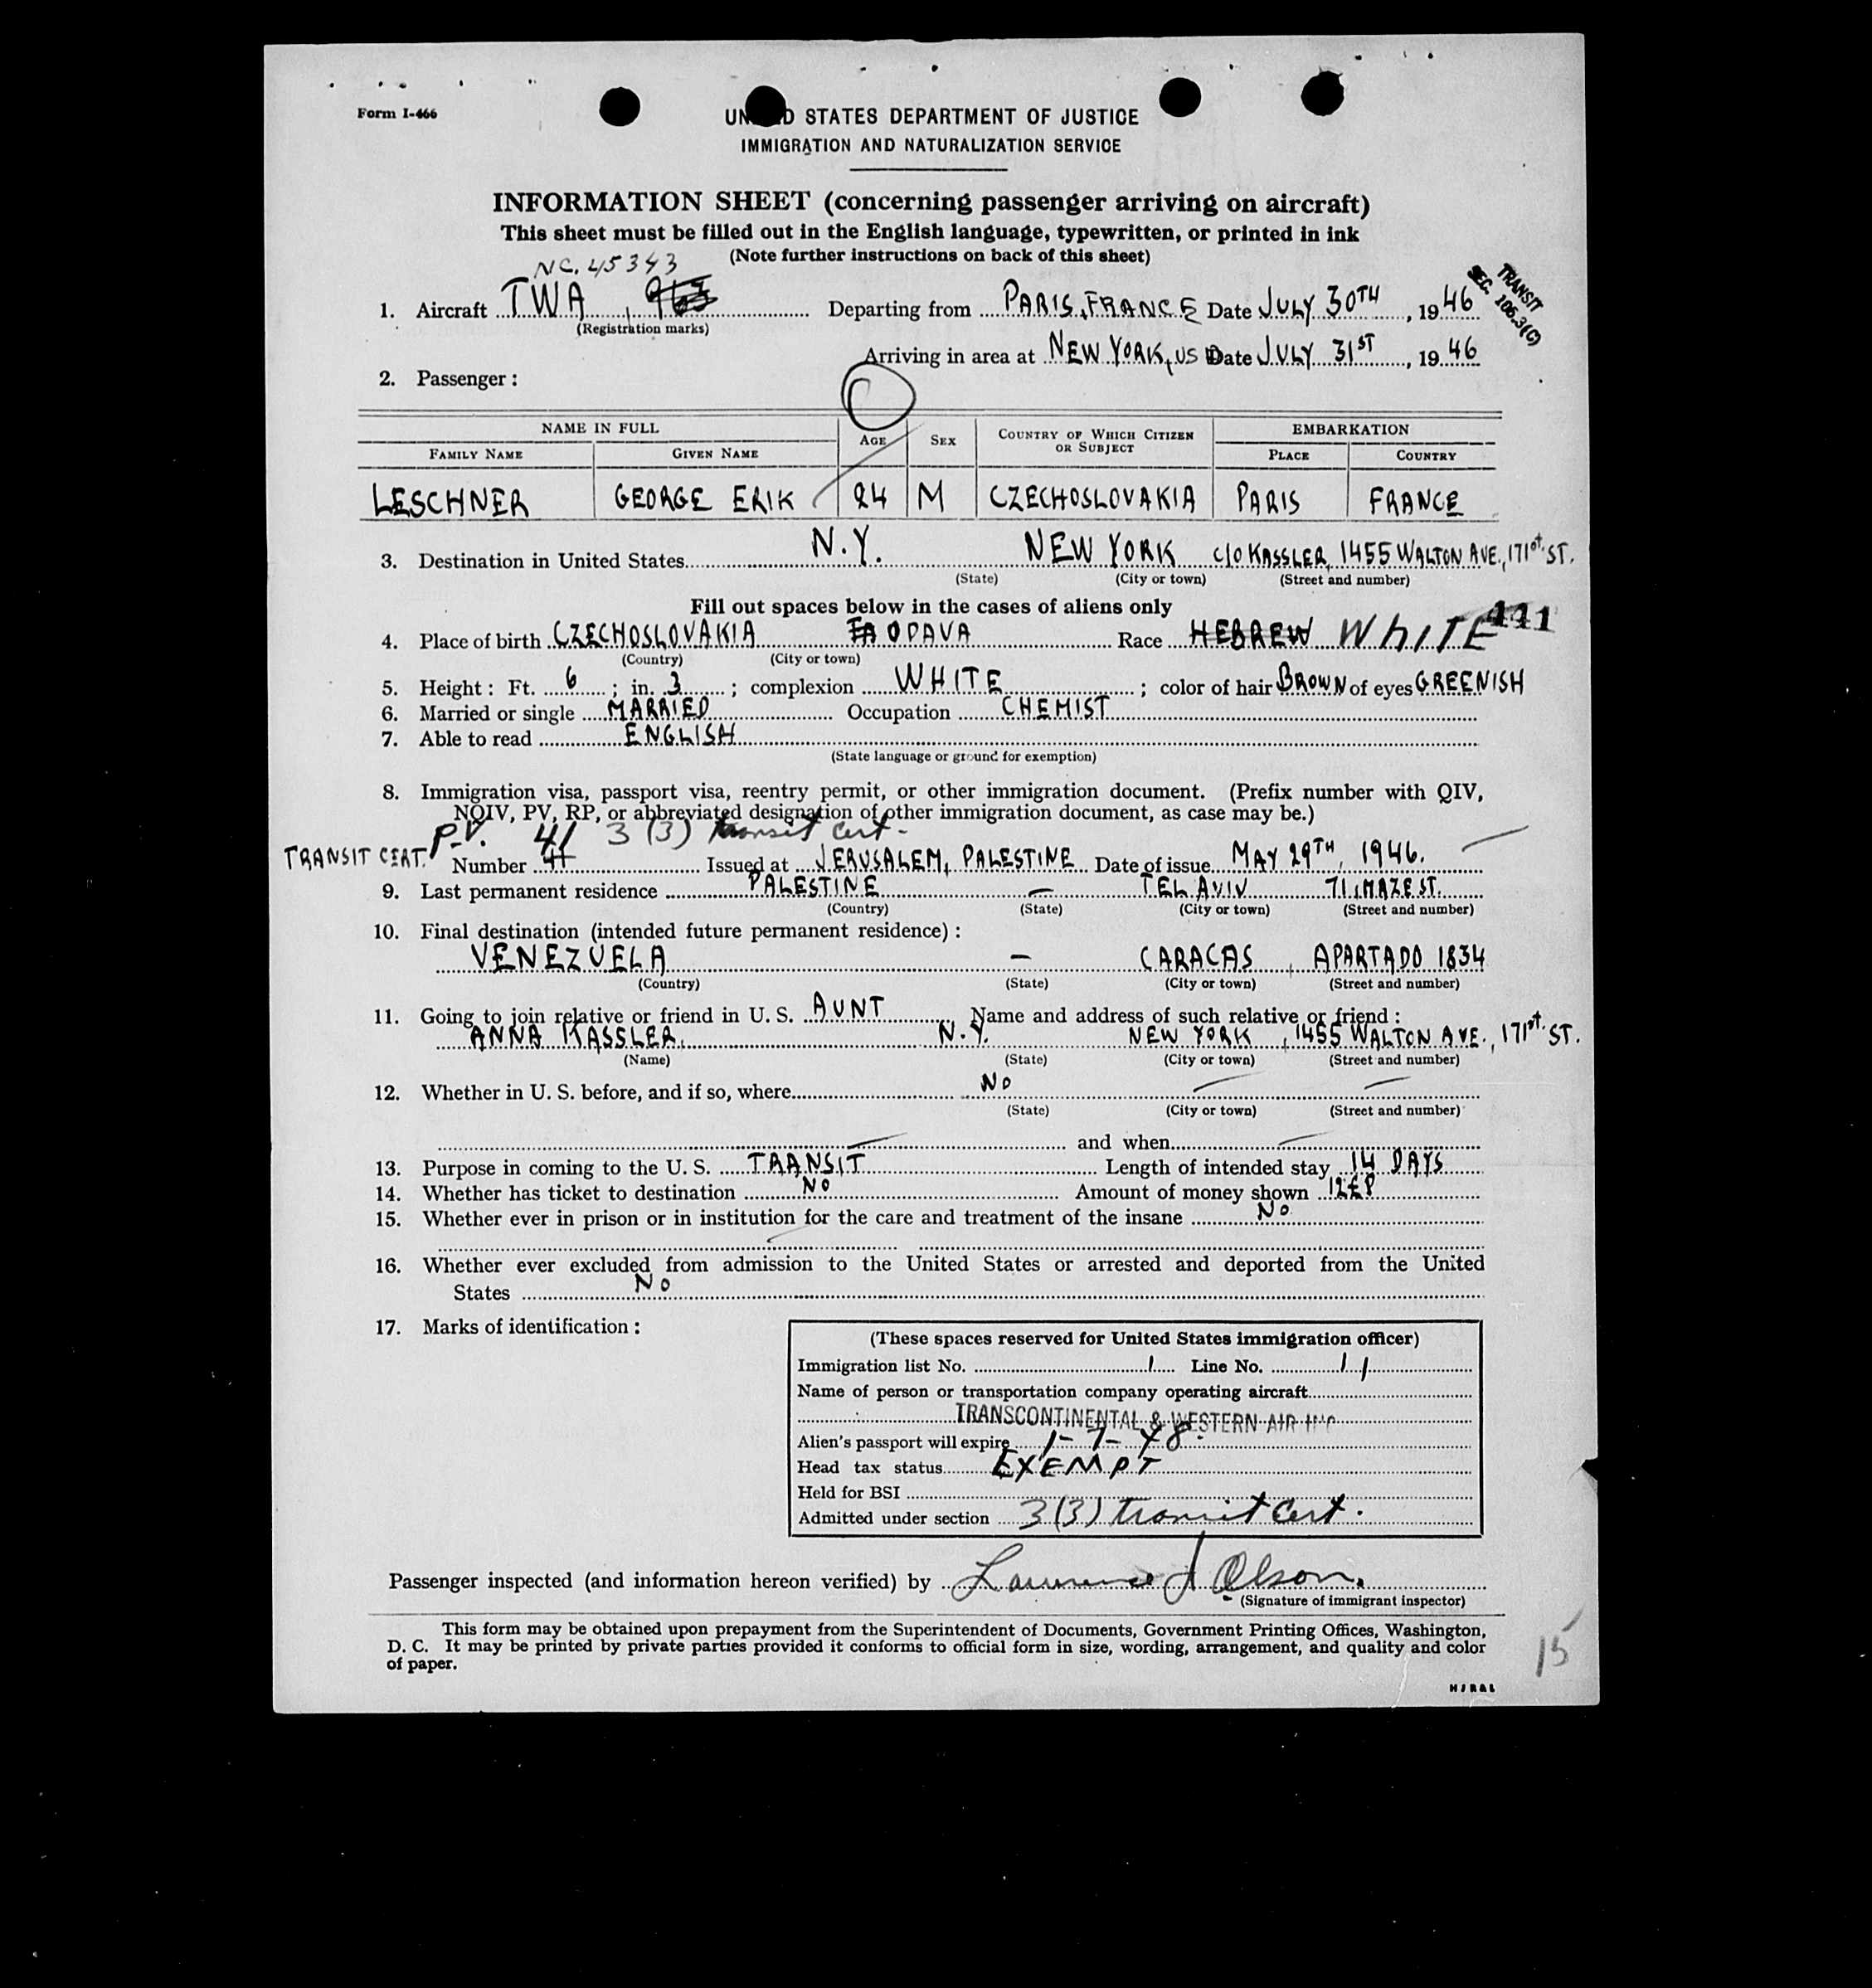 Form I-466
UN D STATES DEPARTMENT OF JUSTICE
IMMIGRATION AND NATURALIZATION SERVICE
INFORMATION SHEET (concerning passenger arriving on aircraft)
This sheet must be filled out in the English language, typewritten, or printed in ink
(Note further instructions on back of this sheet)
NC. 45343
1. Aircraft TWA, Departing from PARIS, FRANCE Date JULY 30TH, 1946
(Registration marks)
TRANSIT
SEC. 106.3(C)
Arriving in area at NEW YORK, US Date JULY 31ST, 1946
2. Passenger:
NAME IN FULL AGE SEX COUNTRY OF WHICH CITIZEN OR SUBJECT EMBARKATION
FAMILY NAME GIVEN NAME PLACE COUNTRY
LESCHNER GEORGE ERIK 24 M CZECHOSLOVAKIA PARIS FRANCE
3. Destination in United States N.Y. NEW YORK C/O KASSLER, 1455 WALTON AVE., 171st. ST.
(State) (City or town) (Street and number)
Fill out spaces below in the cases of aliens only
441
4. Place of birth CZECHOSLOVAKIA OPAVA Race HEBREW WHITE
(Country) (City or town)
5. Height: Ft. 6; in. 3; complexion WHITE; color of hair BROWN of eyes GREENISH
6. Married or single MARRIED Occupation CHEMIST
7. Able to read ENGLISH
(State language or ground for exemption)
8. Immigration visa, passport visa, reentry permit, or other immigration document. (Prefix number with QIV,
NQIV, PV, RP, or abbreviated designation of other immigration document, as case may be.)
P.V. 41 3 (3) transit cert.
TRANSIT CERT. Number 41 Issued at JERUSALEM, PALESTINE Date of issue MAY 29TH, 1946.
9. Last permanent residence PALESTINE — TEL AVIV 71, MAZE ST.
(Country) (State) (City or town) (Street and number)
10. Final destination (intended future permanent residence):
VENEZUELA — CARACAS, APARTADO 1834
(Country) (State) (City or town) (Street and number)
11. Going to join relative or friend in U. S. AUNT Name and address of such relative or friend:
ANNA KASSLER, N.Y. NEW YORK, 1455 WALTON AVE., 171st. ST.
(Name) (State) (City or town) (Street and number)
12. Whether in U. S. before, and if so, where NO — —
(State) (City or town) (Street and number)
— and when —
13. Purpose in coming to the U. S. TRANSIT Length of intended stay 14 DAYS
14. Whether has ticket to destination NO Amount of money shown 12£P
15. Whether ever in prison or in institution for the care and treatment of the insane NO
16. Whether ever excluded from admission to the United States or arrested and deported from the United
States NO
17. Marks of identification:
(These spaces reserved for United States immigration officer)
Immigration list No. 1 Line No. 11
Name of person or transportation company operating aircraft
TRANSCONTINENTAL & WESTERN AIR INC
Alien's passport will expire 1-7-48.
Head tax status EXEMPT
Held for BSI
Admitted under section 3(3) transit Cert.
Passenger inspected (and information hereon verified) by Lawrence J Olson.
(Signature of immigrant inspector)
This form may be obtained upon prepayment from the Superintendent of Documents, Government Printing Offices, Washington,
D. C. It may be printed by private parties provided it conforms to official form in size, wording, arrangement, and quality and color
of paper.
15